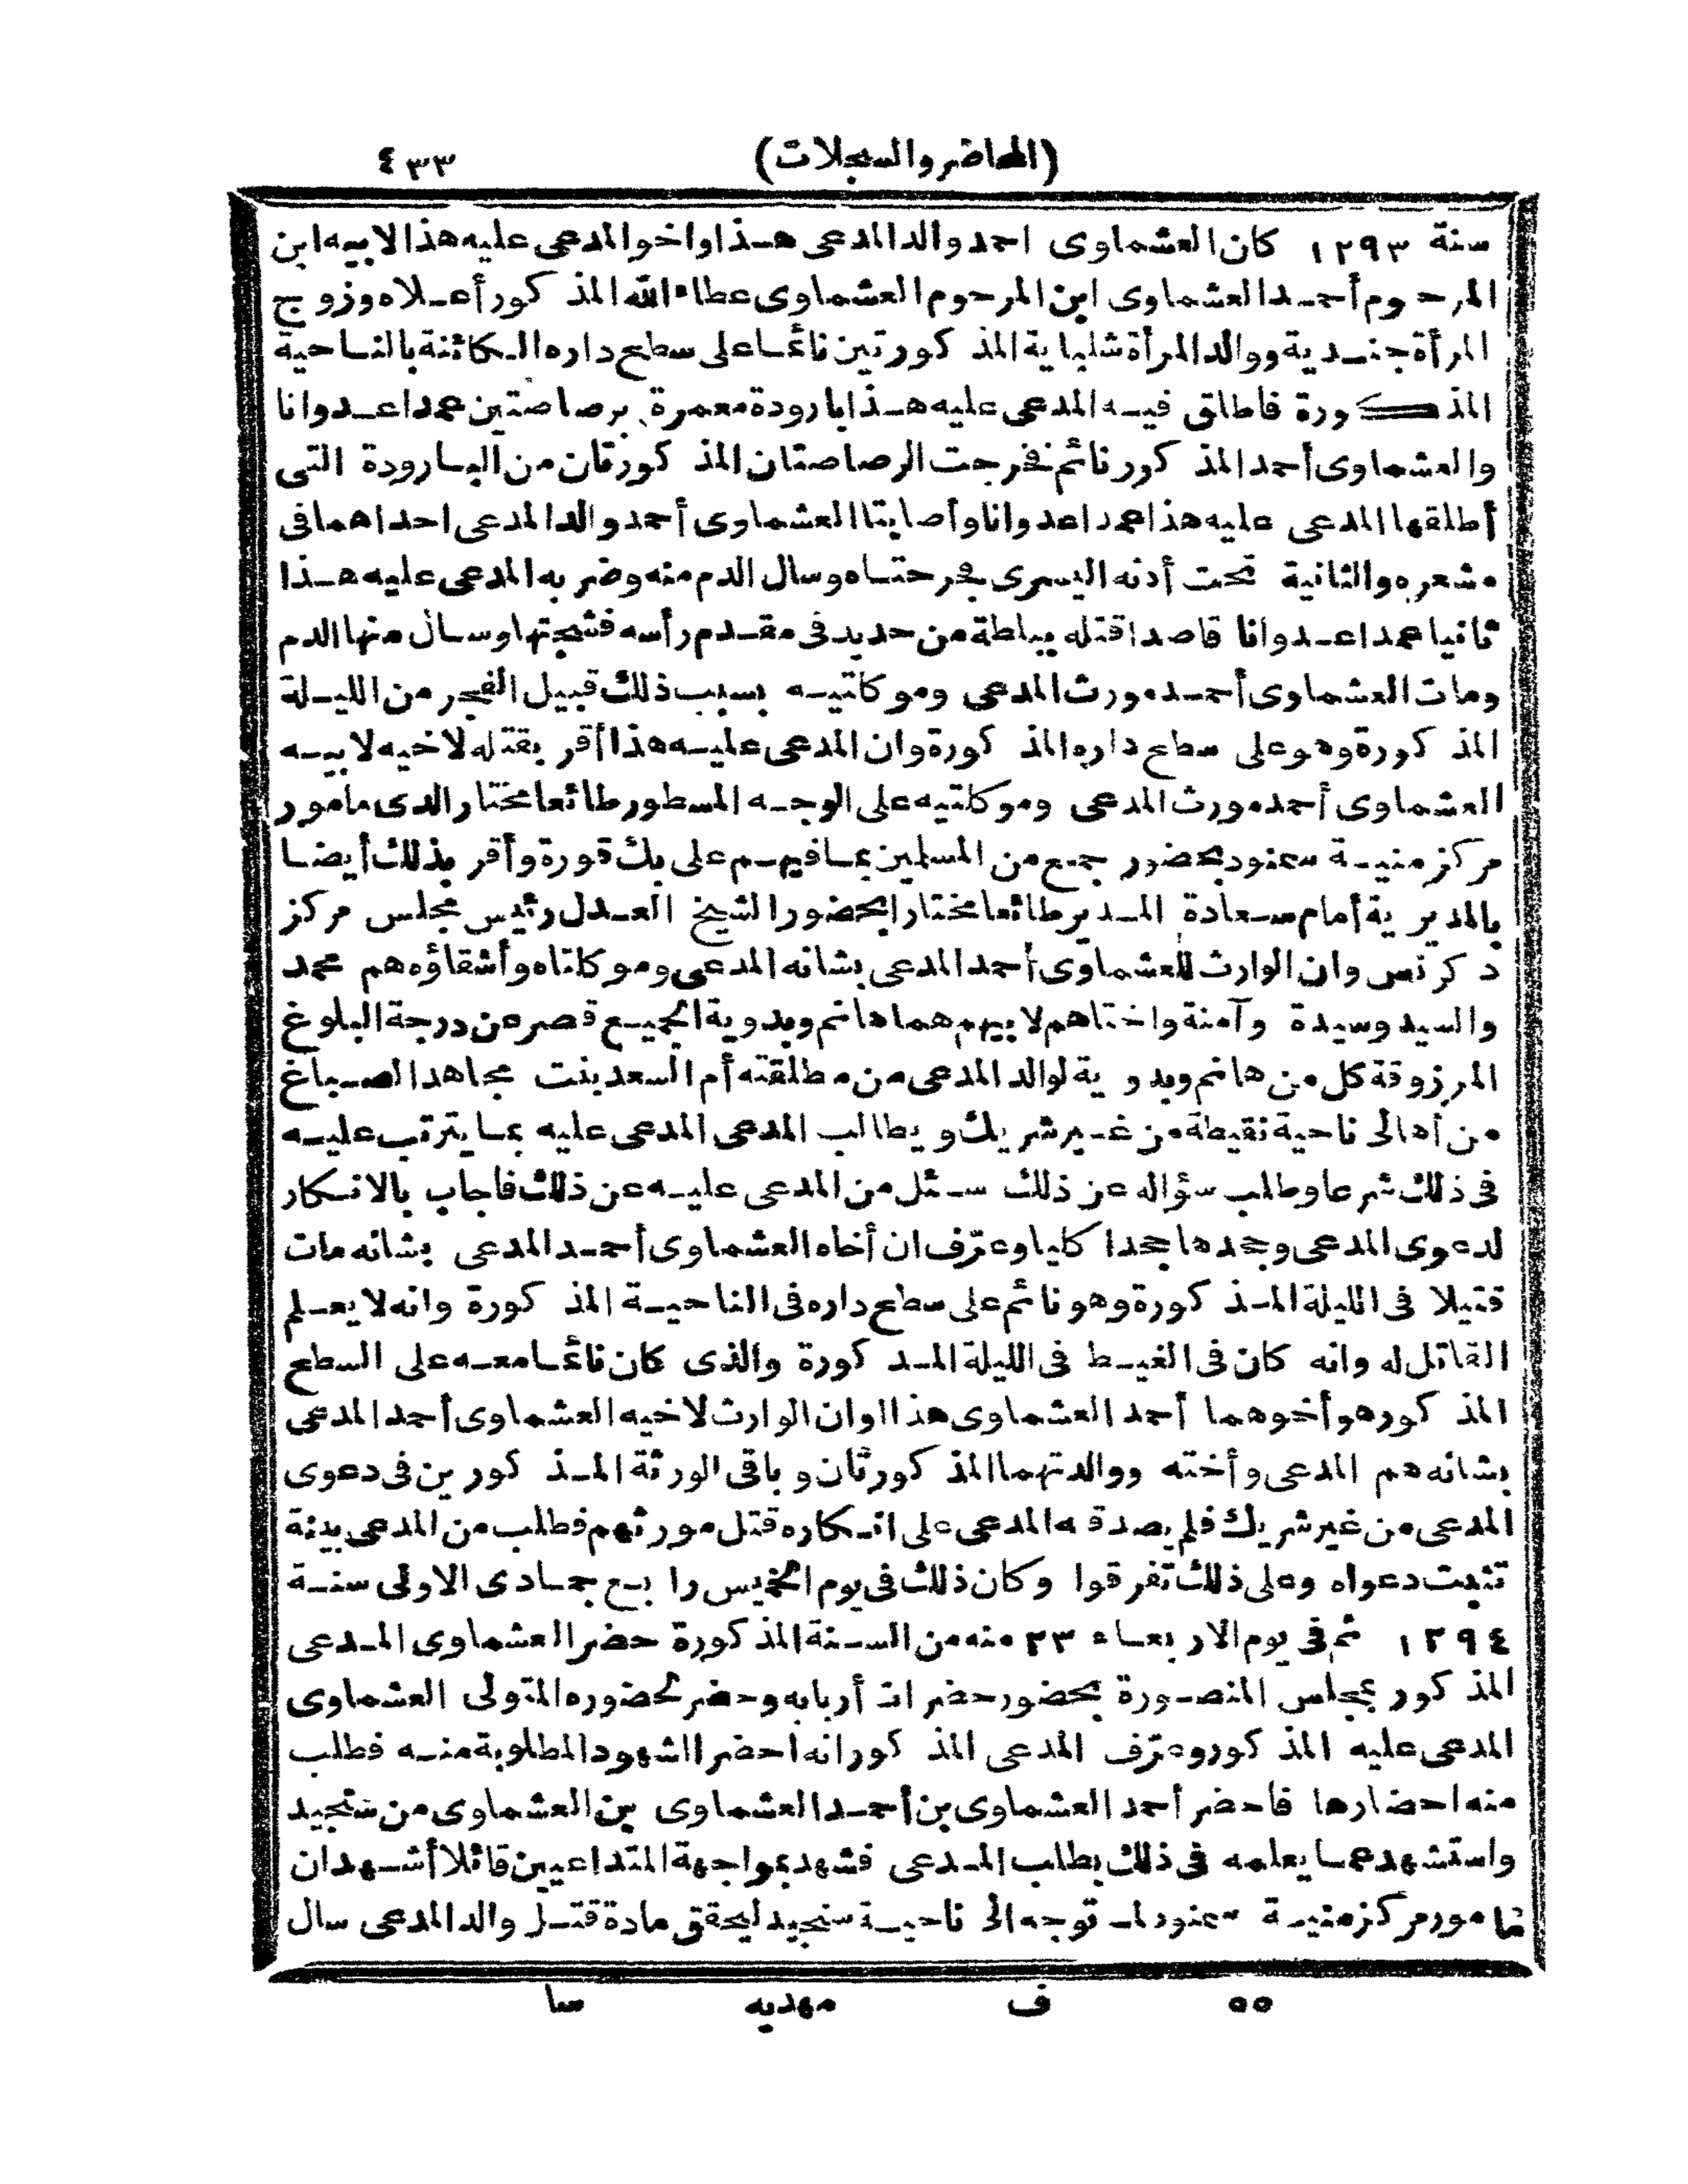 (المحاضر والسجلات) ٤٣٣
سنة ١٢٩٣ كان العشماوى احمد والد المدعى هذا واخو المدعى عليه هذا لابيه ابن
المرحوم أحمد العشماوى ابن المرحوم العشماوى عطاء الله المذكور أعلاه وزوج
المرأة جندية ووالد المرأة شلباية المذكورتين نائما على سطح داره الكائنة بالناحية
المذكورة فاطلق فيه المدعى عليه هذا بارودة معمرة برصاصتين عمدا عدوانا
والعشماوى أحمد المذكور نائم فخرجت الرصاصتان المذكورتان من البارودة التى
أطلقها المدعى عليه هذا عمدا عدوانا وأصابتا العشماوى أحمد والد المدعى احداهما فى
مشعره والثانية تحت أذنه اليسرى فجرحتاه وسال الدم منه وضربه المدعى عليه هذا
ثانيا عمدا عدوانا قاصدا قتله ببلطة من حديد فى مقدم رأسه فشجتها وسال منها الدم
ومات العشماوى أحمد مورث المدعى وموكلتيه بسبب ذلك قبيل الفجر من الليلة
المذكورة وهو على سطح داره المذكورة وان المدعى عليه هذا أقر بقتله لاخيه لابيه
العشماوى أحمد مورث المدعى وموكلتيه على الوجه المسطور طائعا مختار الدى مامور
مركز منية سمنود بحضور جمع من المسلمين بما فيهم على بك قورة وأقر بذلك أيضا
بالمديرية أمام سعادة المدير طائعا مختارا بحضور الشيخ العدل رئيس مجلس مركز
دكرنس وان الوارث للعشماوى أحمد المدعى بشانه المدعى وموكلتاه وأشقاؤه هم محمد
والسيد وسيدة وآمنة واختاهم لابيهم هما هانم وبدوية الجميع قصر عن درجة البلوغ
المرزوقة كل من هانم وبدوية لوالد المدعى من مطلقته أم السعد بنت مجاهد الصباغ
من أهالى ناحية نقيطة من غير شريك ويطالب المدعى المدعى عليه بما يترتب عليه
فى ذلك شرعا وطلب سؤاله عن ذلك سئل من المدعى عليه عن ذلك فاجاب بالانكار
لدعوى المدعى وجحدها جحدا كليا وعرف ان أخاه العشماوى أحمد المدعى بشانه مات
قتيلا فى الليلة المذكورة وهو نائم على سطح داره فى الناحية المذكورة وانه لا يعلم
القاتل له وانه كان فى الغيط فى الليلة المذكورة والذى كان نائما معه على السطح
المذكور هو أخوهما أحمد العشماوى هذا وان الوارث لاخيه العشماوى أحمد المدعى
بشانه هم المدعى وأخته ووالدتهما المذكورتان وباقى الورثة المذكورين فى دعوى
المدعى من غير شريك فلم يصدقه المدعى على انكاره قتل مورثهم فطلب من المدعى بينة
تثبت دعواه وعلى ذلك تفرقوا وكان ذلك فى يوم الخميس رابع جمادى الاولى سنة
١٢٩٤ ثم فى يوم الاربعاء ٢٣ منه من السنة المذكورة حضر العشماوى المدعى
المذكور بمجلس المنصورة بحضور حضرات أربابه وحضر لحضوره المتولى العشماوى
المدعى عليه المذكور وعرف المدعى المذكور انه أحضر الشهود المطلوبة منه فطلب
منه احضارها فاحضر أحمد العشماوى بن أحمد العشماوى بن العشماوى من سنجيد
واستشهد عما يعلمه فى ذلك بطلب المدعى فشهد بمواجهة المتداعيين قائلا أشهد ان
مامور مركز منية سمنود لما توجه الى ناحية سنجيد ليحقق مادة قتل والد المدعى سال
٥٥ ف مهديه سا